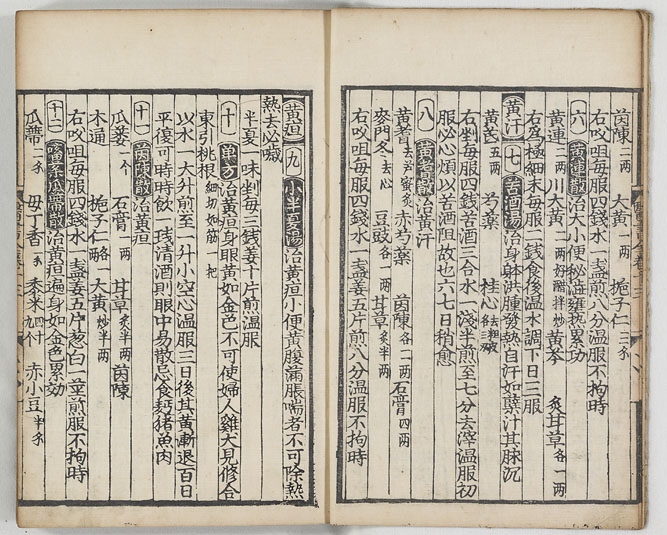 茵陳二两 大黄一两 梔子仁三錢
右㕮咀每服四錢水一盞煎八分温服不拘時
六 黄連散治大小便秘澁壅熱累功
黄連二两 川大黄二两好醋拌炒 黄芩 炙甘草各一两
右爲極細末每服二錢食後温水調下日三服
黄汁 七 苦酒湯治身躰洪腫發熱自汗如蘗汁其脉沉
黄芪五两 芍藥 桂心各去粗皮
右剉每服四錢苦酒三合水一淺半煎至七分去滓温服初
服必心煩以苦酒阻故也六七日稍愈
八 黄耆散治黄汗
黄耆去芦蜜炙 赤芍藥 茵陳各二两 石膏四两
麥門冬去心 豆豉各一两 甘草炙半两
右㕮咀每服四錢水一盞姜五片煎八分温服不拘時
黄疸 九 小半夏湯治黄疸小便黄腹滿脹喘者不可除熱
熱去必噦
半夏一味剉每三錢姜十片煎温服
十 單方治黄疸身眼黄如金色不可使婦人雞犬見修合
東引桃根細切如筋一把
以水一大升煎至一升小空心温服三日後其黄漸退百日
平復可時時飲一琖清酒則眼中易散忌食麪猪魚肉
十一 茵陳散治黄疸
瓜蔞一个 石膏一两 甘草炙半两 茵陳
木通 梔子仁各一两 大黄炒半两
右㕮咀每服四錢水一盞姜五片葱白一莖煎服不拘時
十二 瓜蔕散治黄疸遍身如金色累効
瓜蔕二錢 母丁香一錢 黍米四十九付 赤小豆半錢